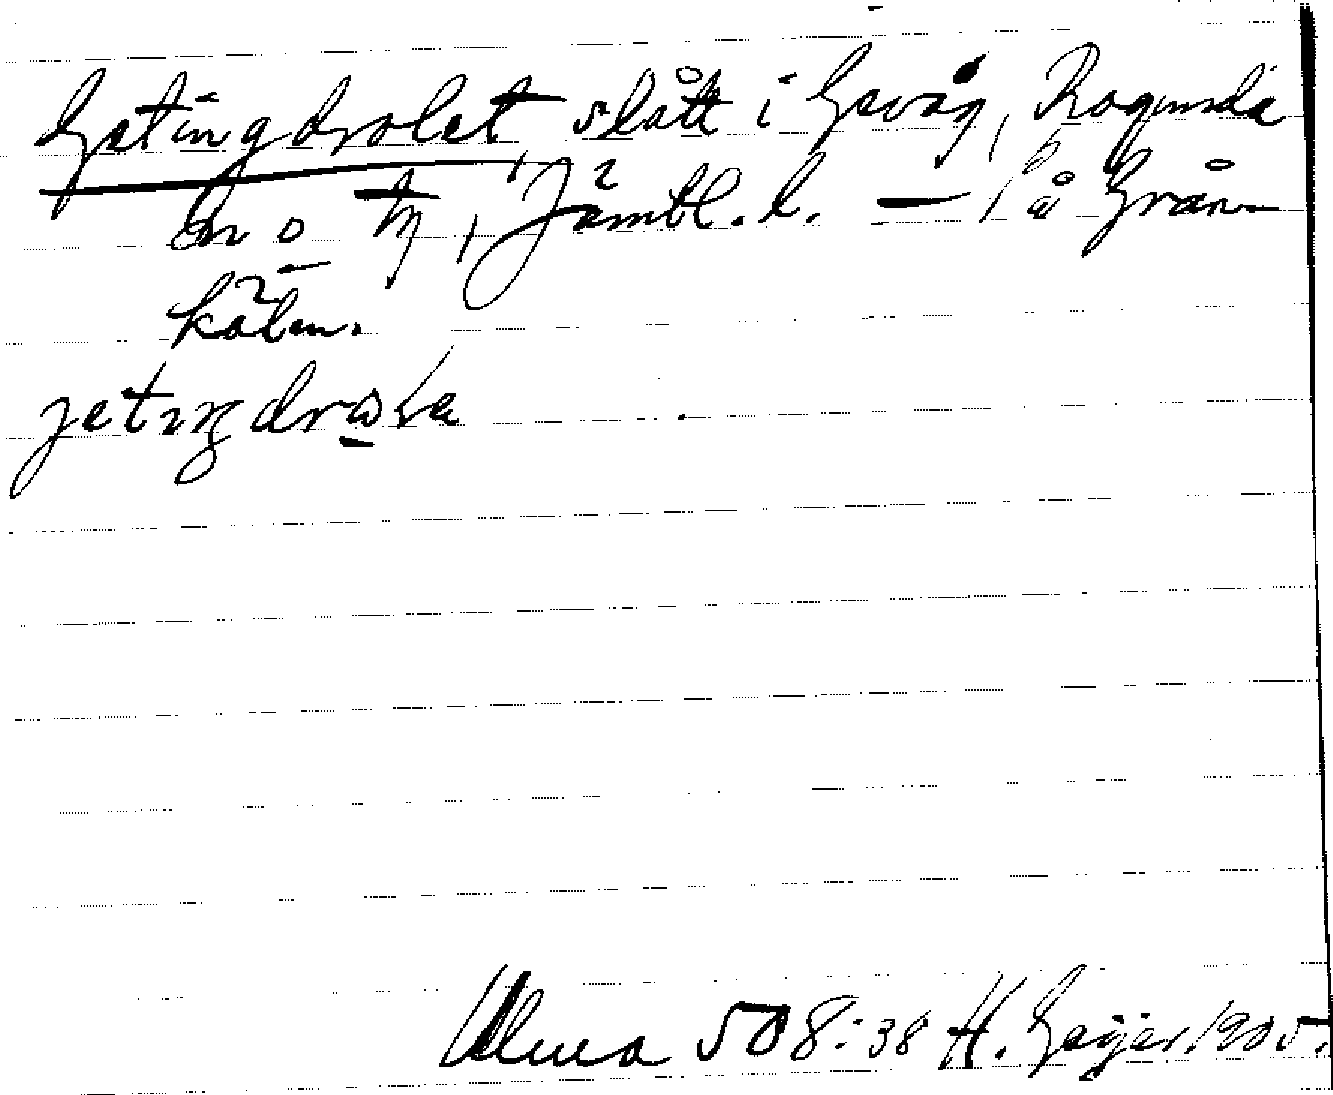 Getingdrolet, slått i Gevåg, Ragunda
sn o tg, Jämtl. l. — På Gran-
kälen.
jetiŋdrɷla
Ulma 508:38 H. Geijer 1905.